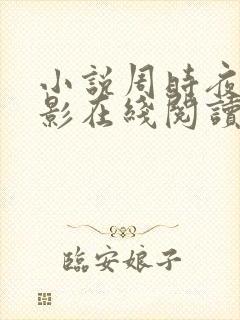 小說周時夜
影在綫閱讀
臨安娘子